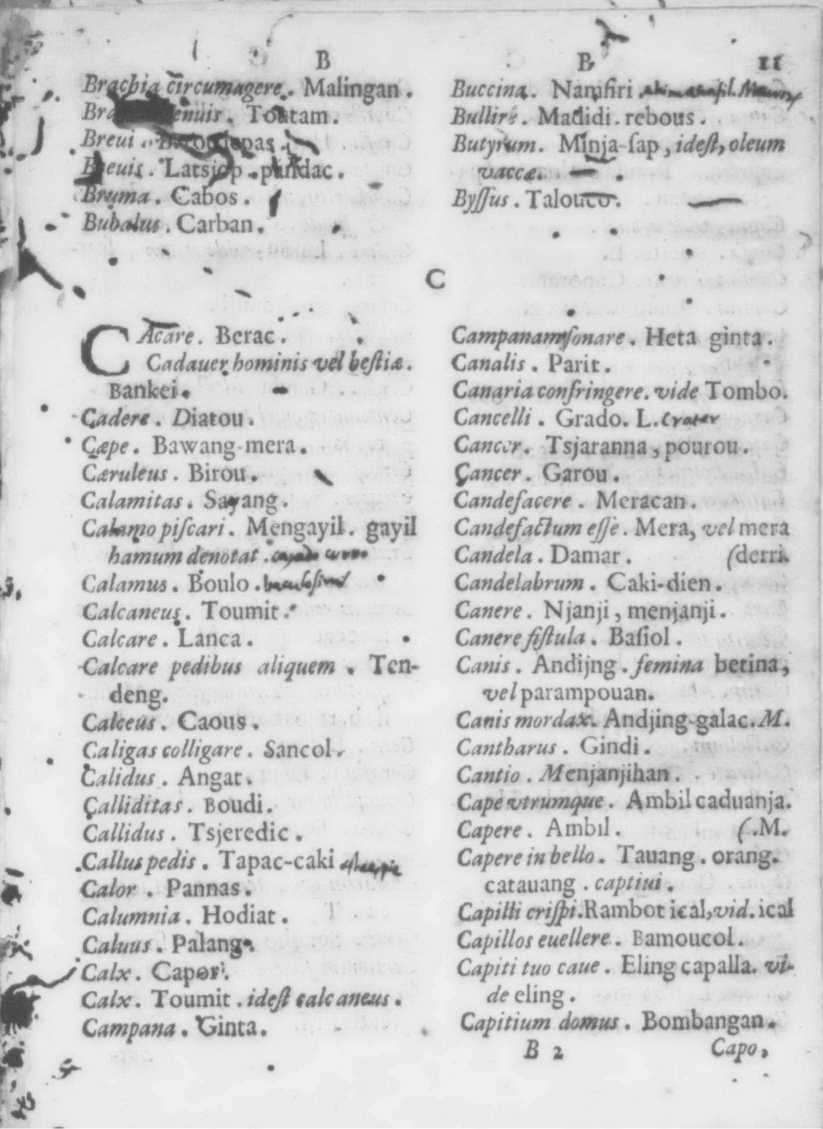 B
Brachia circumagere. Malingan.
Toatam.
Breui.
Breuis. Latsjop. pandac.
Bruma. Cabos.
Bubalus. Carban.
B
11
Buccina. Namfiri
Bullire. Madidi. rebous.
Butyrum. Minja-sap, idest, oleum
vaccæ.
Byssus. Talouco.
C
CAcare. Berac.
Cadauer hominis vel bestiæ.
Bankei.
Cadere. Diatou.
Cæpe. Bawang-mera.
Cæruleus. Birou.
Calamitas. Sayang.
Calamo piscari. Mengayil. gayil
hamum denotat.
Calamus. Boulo.
Calcaneus. Toumit.
Calcare. Lanca.
Calcare pedibus aliquem. Ten-
deng.
Calceus. Caous.
Caligas colligare. Sancol.
Calidus. Angat.
Calliditas. Boudi.
Callidus. Tsjeredic.
Callus pedis. Tapac-caki
Calor. Pannas.
Calumnia. Hodiat.
Caluus. Palang.
Calx. Capor.
Calx. Toumit. idest calcaneus.
Campana. Ginta.
Campanam sonare. Heta ginta.
Canalis. Parit.
Canaria confringere. vide Tombo.
Cancelli. Grado. L.
Cancer. Tsjaranna, pourou.
Cancer. Garou.
Candefacere. Meracan.
Candefactum esse. Mera, vel mera
Candela. Damar. (derri.
Candelabrum. Caki-dien.
Canere. Njanji, menjanji.
Canere fistula. Basiol.
Canis. Andijng. femina betina,
vel parampouan.
Canis mordax. Andjing-galac. M.
Cantharus. Gindi.
Cantio. Menjanjihan.
Cape vtrumque. Ambil caduanja.
Capere. Ambil. (.M.
Capere in bello. Tauang. orang.
catauang. captiui.
Capilli crispi. Rambot ical, vid. ical
Capillos euellere. Bamoucol.
Capiti tuo caue. Eling capalla. vi-
de eling.
Capitium domus. Bombangan.
B 2 Capo,